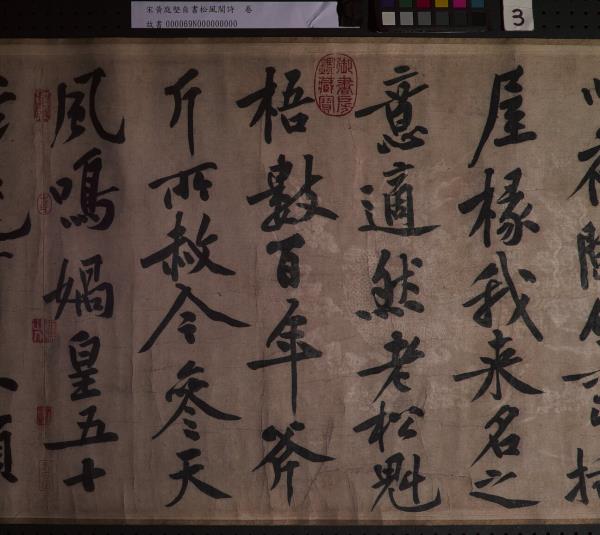 宋黃庭堅自書松風閣詩 卷
故書 000069N000000000
3
川夜闌箕斗插
屋椽我来名之
意適然老松魁
御書房
鑑藏寶
梧數百年斧
斤所赦今參天
風鳴媧皇五十